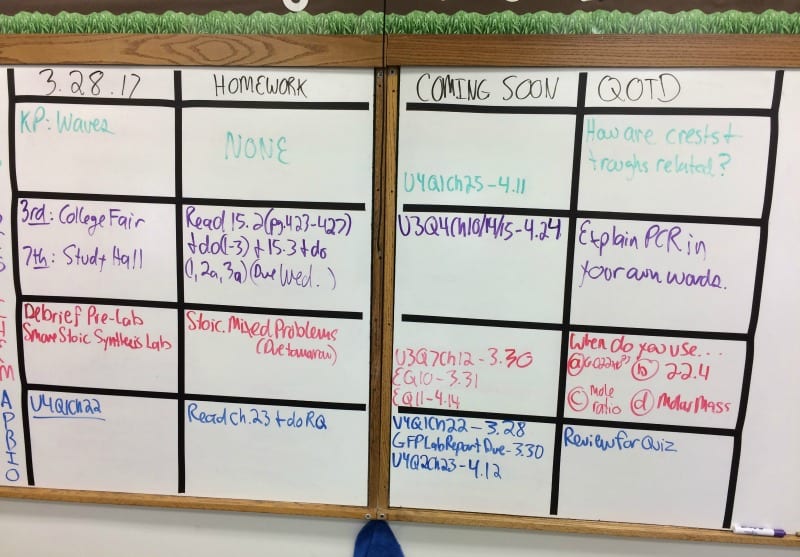 3.28.17
HOMEWORK
COMING SOON
QOTD
KP: Waves
NONE
U4Q1Ch25-4.11
How are crests +
troughs related?
3rd: College Fair
7th: Study Hall
Read 15.2 (pg.423-427)
+ do (1-3) + 15.3 + do
(1, 2a, 3a) (Due Wed.)
U3Q4Ch10/14/15-4.24
Explain PCR in
your own words.
Debrief Pre-Lab
Smore Stoic Synthesis Lab
Stoic. Mixed Problems
(Due tomorrow)
U3Q7Ch12-3.30
EQ10-3.31
EQ11-4.14
When do you use...
(a) 6.022x10²³ (b) 22.4
(c) Mole
ratio (d) Molar Mass
APBIO
U4Q1Ch22
Read Ch.23 + do RQ
U4Q1Ch22-3.28
GFP Lab Report Due-3.30
U4Q2Ch23-4.12
Review for Quiz